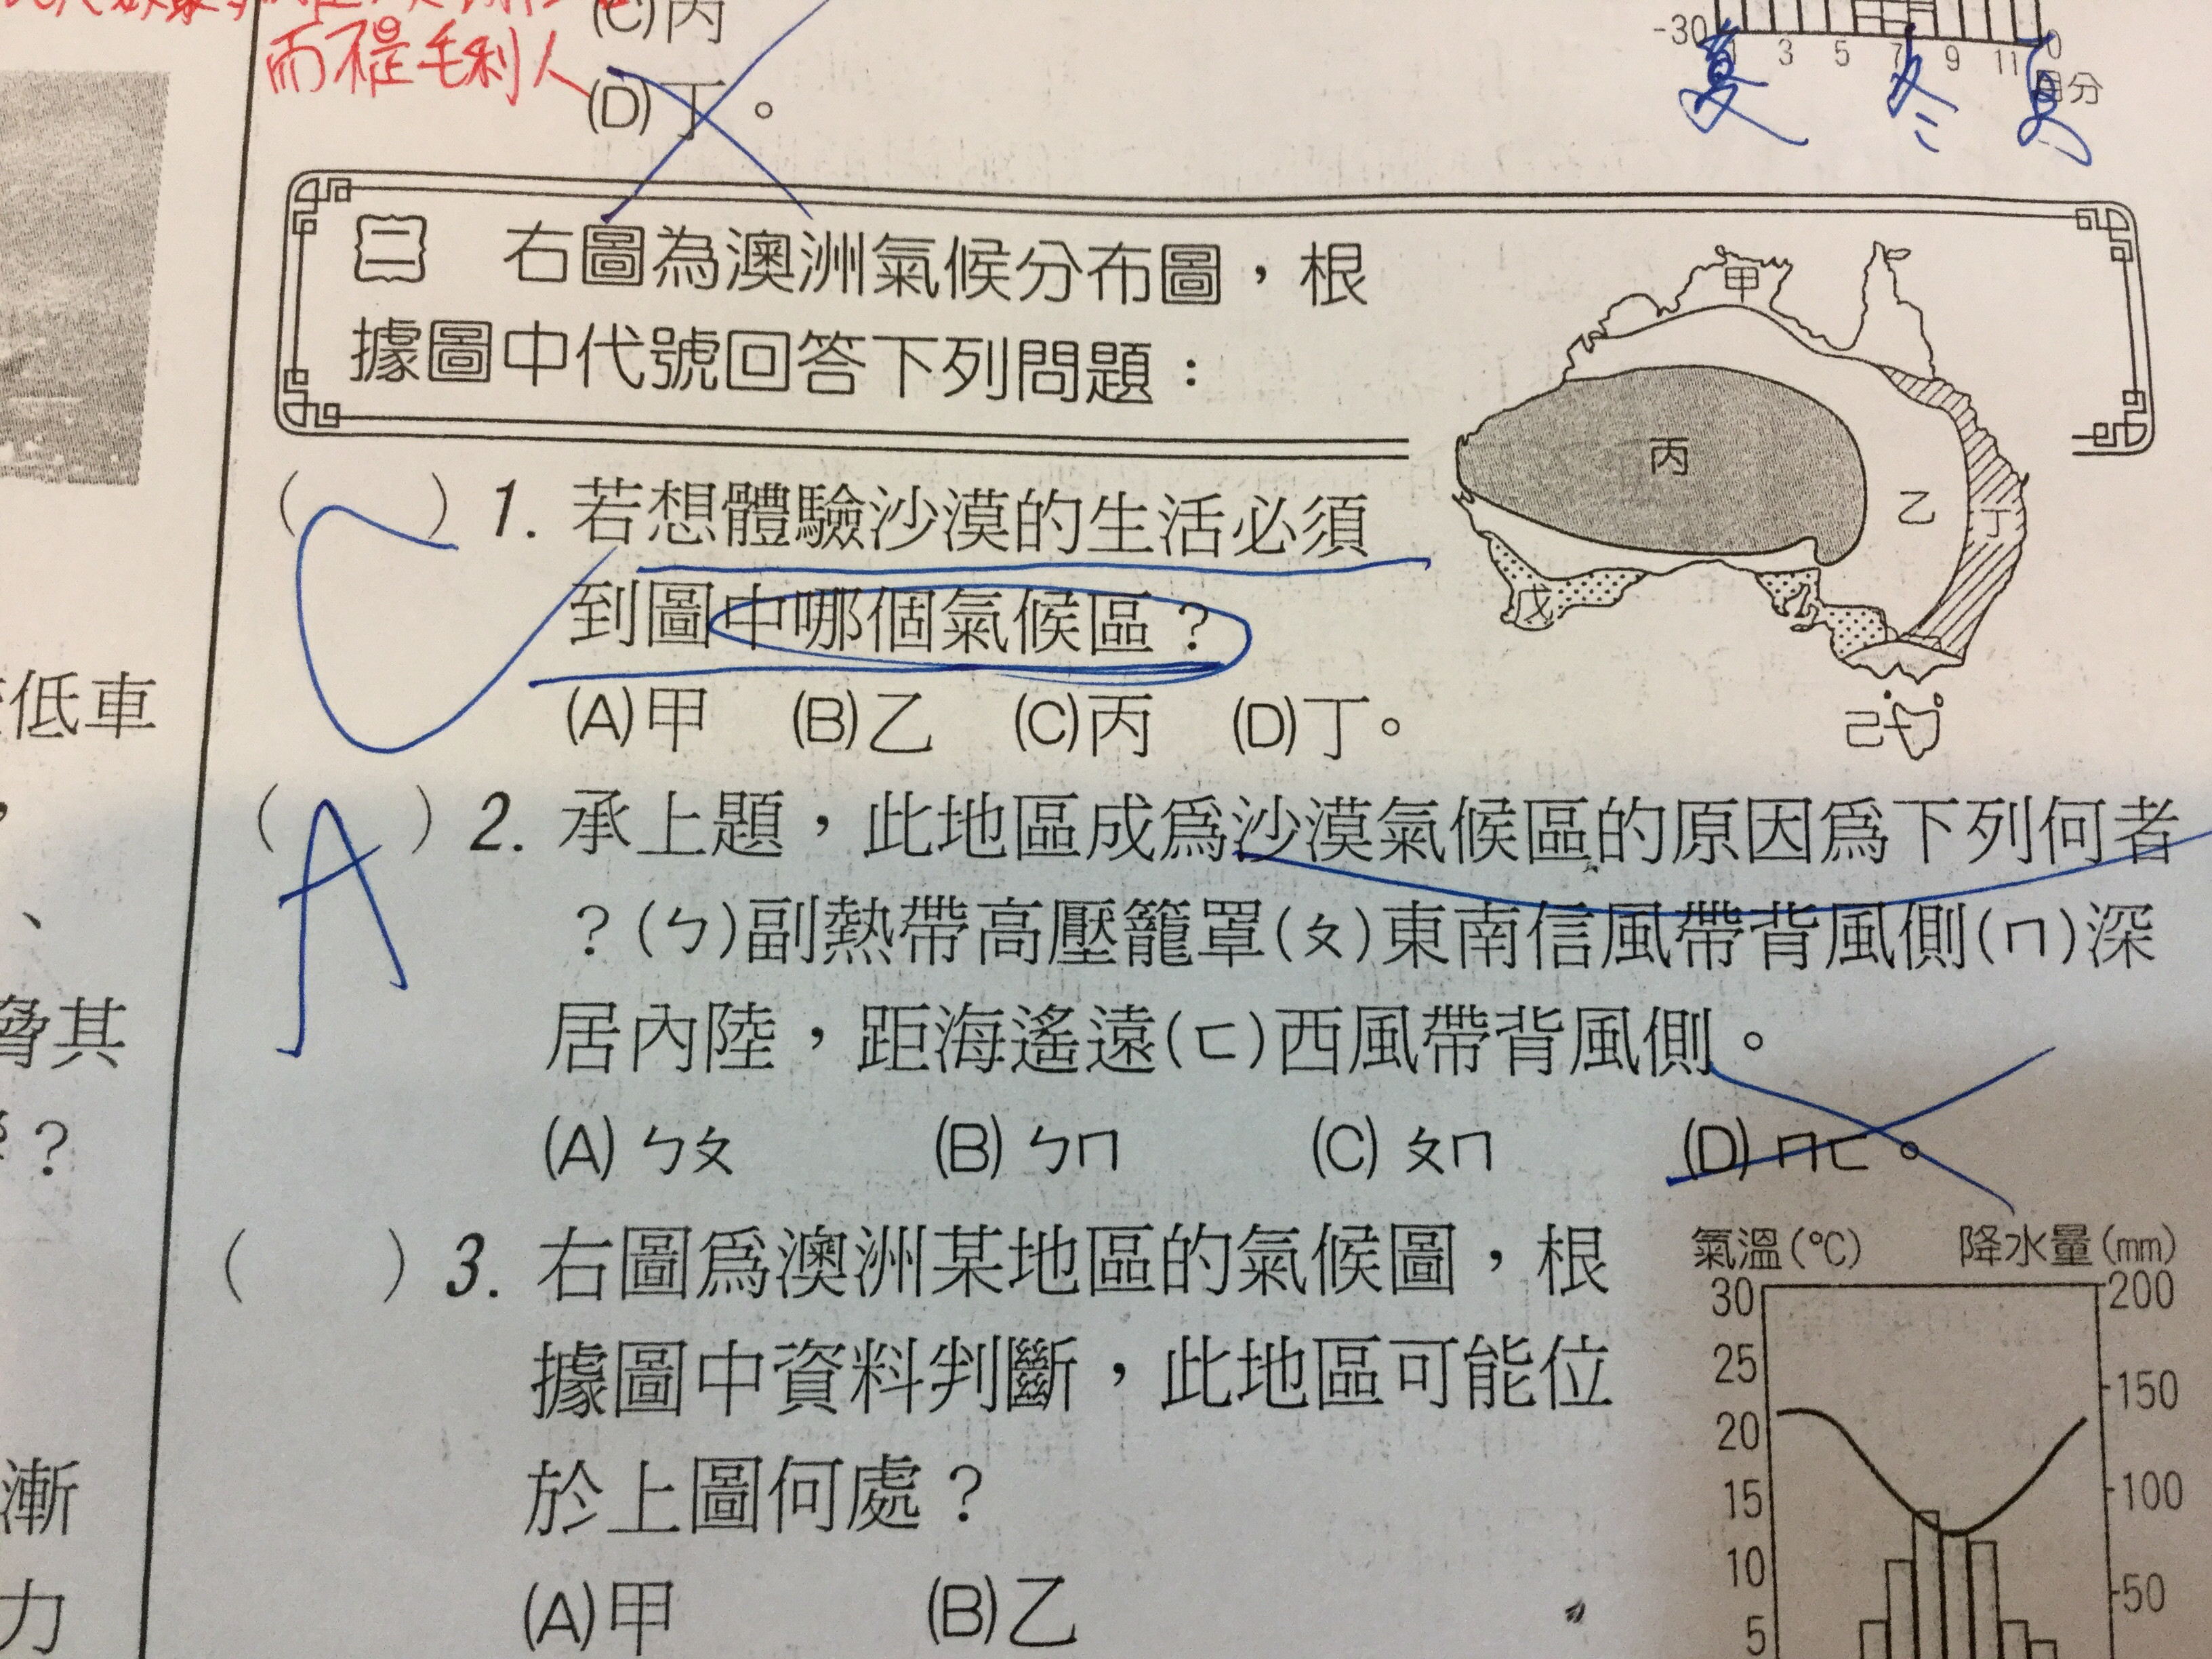 而不是毛利人
(C)丙
(D)丁。
-30
1 3 5 7 9 11
0
月分
夏 冬 夏
二 右圖為澳洲氣候分布圖，根
據圖中代號回答下列問題：
甲
丙
乙
丁
戊
戊
己
( C ) 1. 若想體驗沙漠的生活必須
到圖中哪個氣候區？
(A)甲 (B)乙 (C)丙 (D)丁。
( A ) 2. 承上題，此地區成爲沙漠氣候區的原因爲下列何者
？(ㄅ)副熱帶高壓籠罩(ㄆ)東南信風帶背風側(ㄇ)深
居內陸，距海遙遠(ㄈ)西風帶背風側。
(A) ㄅㄆ (B) ㄅㄇ (C) ㄆㄇ (D) ㄇㄈ。
( ) 3. 右圖爲澳洲某地區的氣候圖，根
據圖中資料判斷，此地區可能位
於上圖何處？
(A)甲 (B)乙
氣溫(℃) 降水量(mm)
30 200
25
150
20
15 100
10
50
5
低車
，
、
脅其
？
漸
力